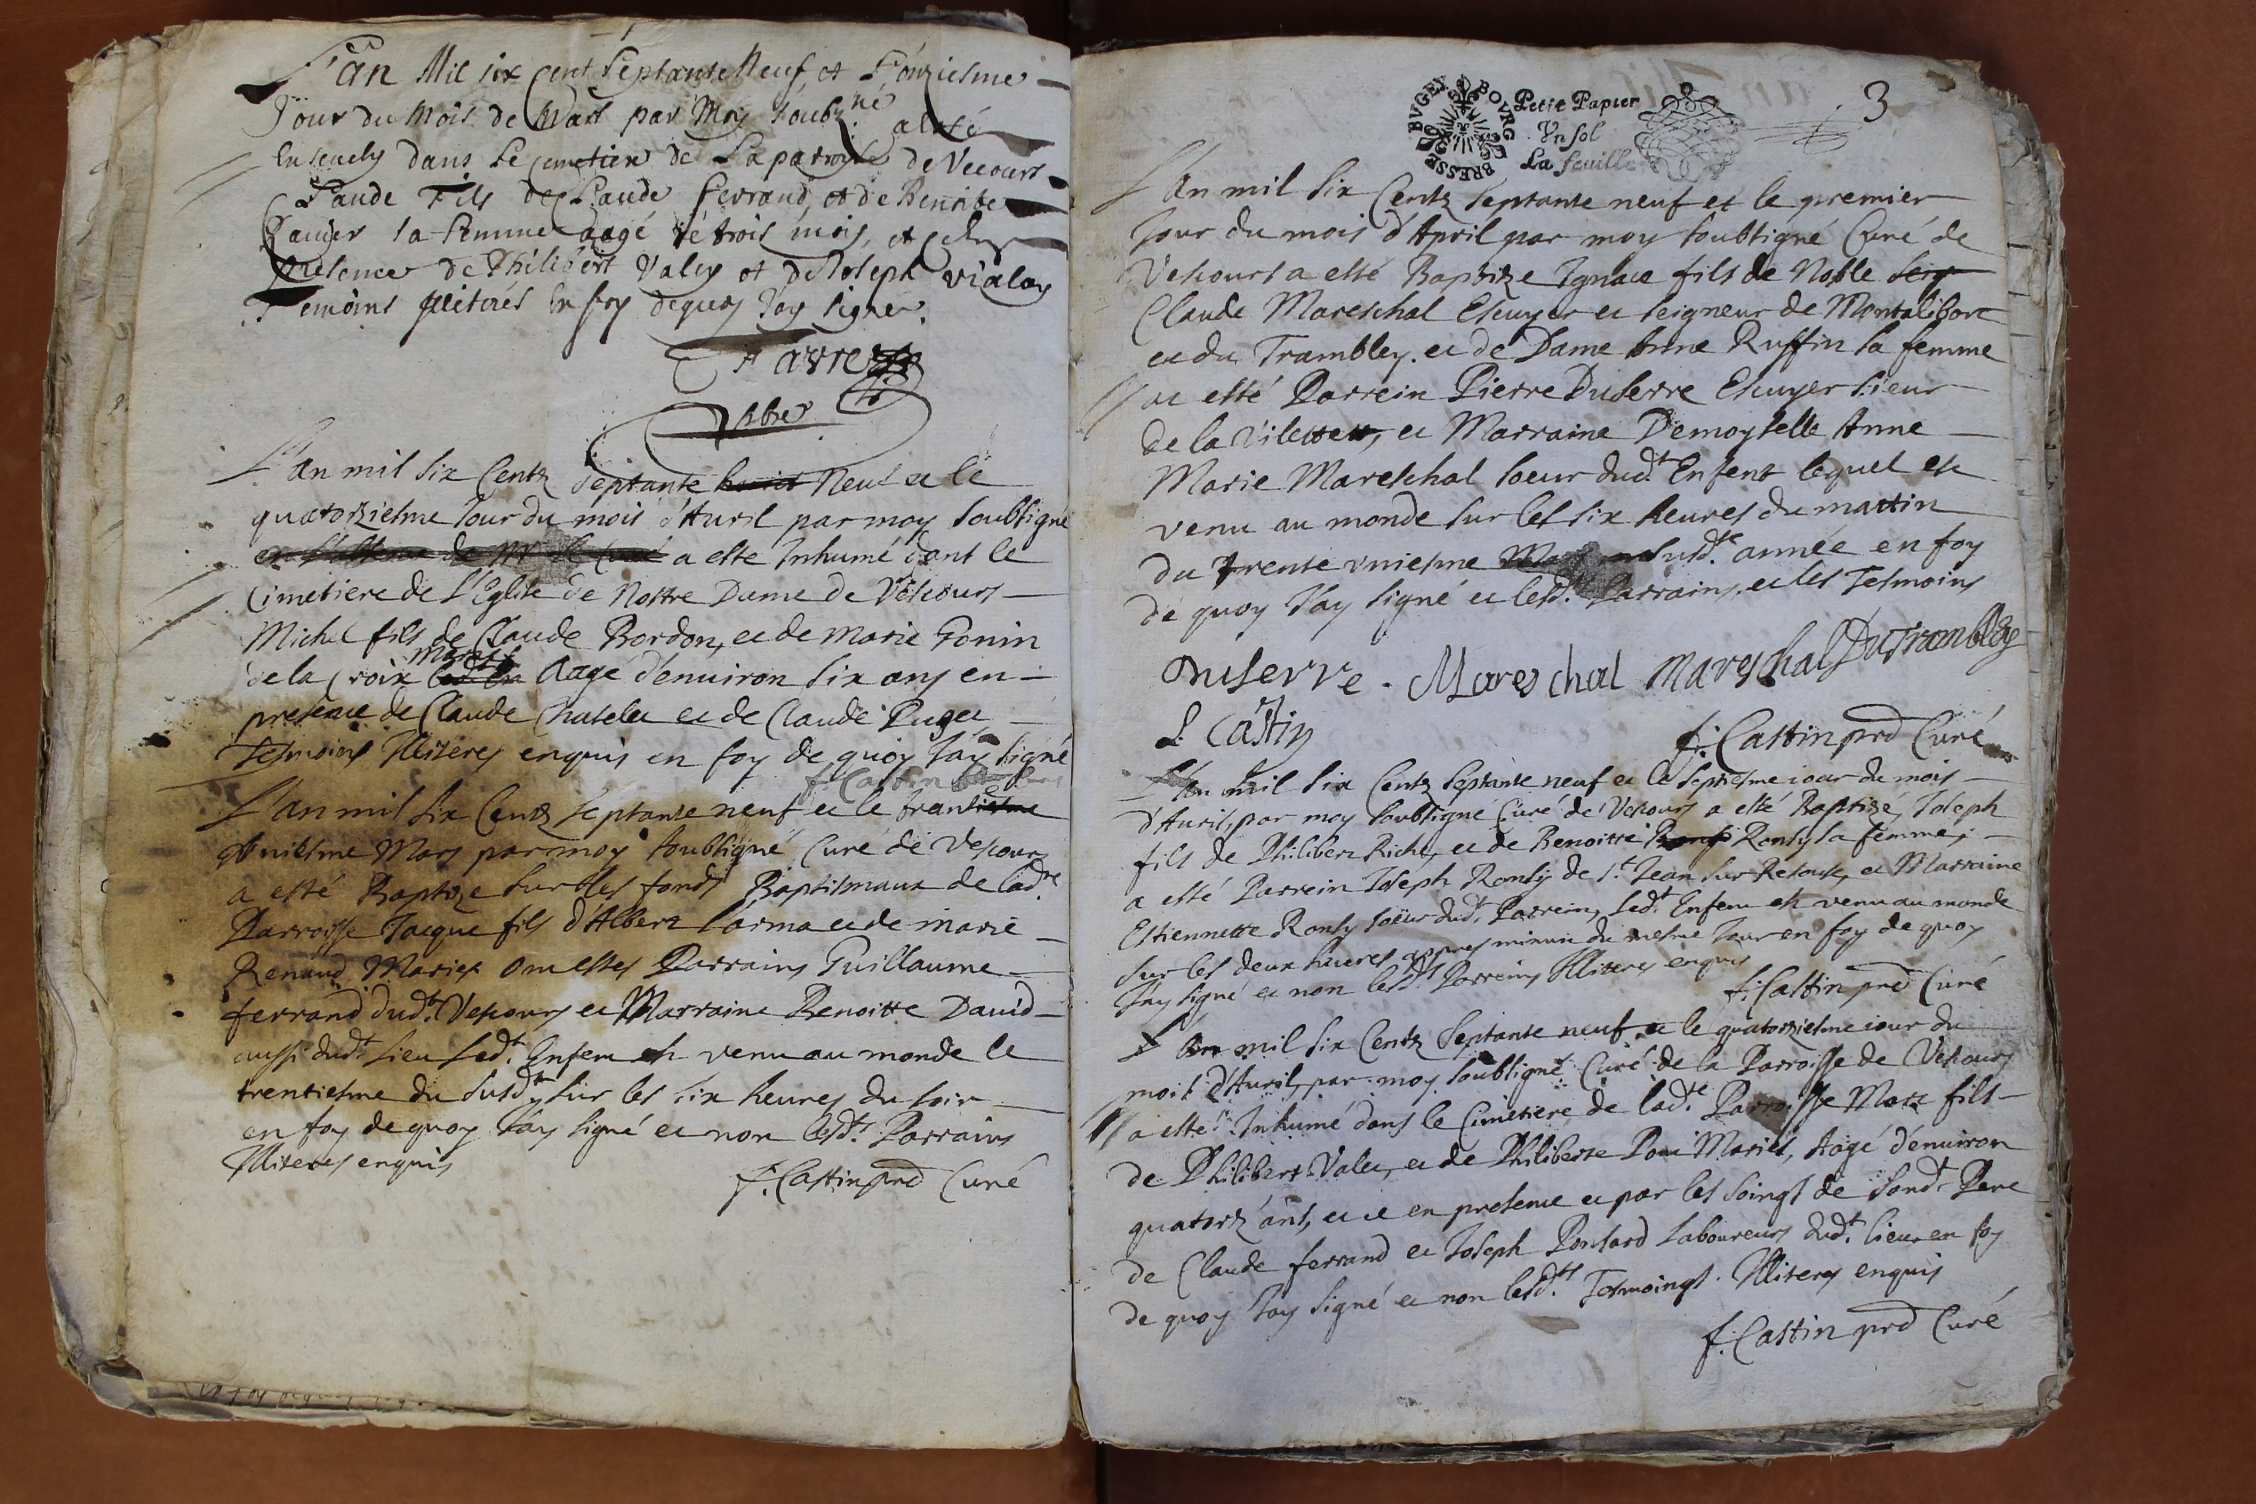 L'an Mil six Cent Septante Neuf et L'onziesme
Jour du Mois de Mars par Moy soubz.né a esté
Ensevely dans Le Cemetiere de La paroysse de Vecours
Claude Fils de Claude ferrand et de Benoite
sa femme aagé de trois mois, et
presence de Philibert Valey et de Joseph vialay
Temoins en foy dequoy J'ay signer.
Favre
L'an mil six Centz Septante huict Neuf et le
quatorziesme Jour du mois d'Auril par moy soubsigné
a esté Inhumé dans le
Cimetiere de L'Eglise de Nostre Dame de Vescours
Michel fils de Claude Bordon, et de Marie Gonin
mariés
de la Croix Aagé d'enuiron six ans en
presence de Claude Chatelet et de Claude Puget
Tesmoins Illiterés enquis en foy de quoy J'ay signé
f. Castin
L'an mil six Centz septante neuf et le trantiesme
vniesme Mars par moy soubsigné Curé de Vescours
a esté Baptize sur les fonds Baptismaux de lad.te
Parroisse Jacque fils d'Albert Larma et de marie
Renaud Mariex ont estes Parrains Guillaume
ferrand dud.t Vescours et Marraine Benoitte David
aussi dud.t lieu Led.t Enfent est venu au monde le
trentiesme du susd.t sur les six heures du soir
en foy de quoy J'ay signé et non lesd.ts Parrains
Illiterés enquis
f. Castin prd Curé
BRESSE BVGEY BOVRG
Petit Papier
Vn sol
La feuille
3
L'an mil six Centz septante neuf et le premier
Jour du mois d'April par moy soubsigné Curé de
Vescours a esté Baptize Ignace fils de Noble
Claude Mareschal Escuyer et seigneur de Montalibort
et du Trambley. et de Dame Anne Ruffin sa femme
at esté Parrein Pierre Duserre Escuyer sieur
de la Vilette, et Marraine Demoyselle Anne
Marie Mareschal soeur dud.t Enfent lequel est
venu au monde sur les six heures du mattin
du trente vniesme susd.te année en foy
de quoy J'ay signé et lesd.ts Parrains, et les Tesmoins
Duserre. Mareschal Mareschal Du Trambley
Castin
f. Castin prd Curé
L'an mil six Centz septante neuf et le septiesme iour du mois
d'Auril, par moy soubsigné Curé de Vescours a esté Baptizé Joseph
fils de Philibert Riche, et de Benoitte Ronsy sa femme,
a esté Parrein Joseph Ronsy de S.t Jean sur Resouse, et Marraine
Estiennette Ronsy soeur dud.t Parrein, Led.t Enfent est venu au monde
sur les deux heures appres minuit du mesme Jour en foy de quoy
J'ay signé et non lesd.ts Parreins Illiteres enquis
f. Castin prd Curé
L'an mil six Centz Septante neuf et le quatorziesme iour du
mois d'Auril, par moy soubsigné Curé de la Parroisse de Vescours
a esté Inhumé dans le Cimetiere de lad.te Parroisse Marc fils
de Philibert Valey, et de Philiberte Mariés, Aagé d'enuiron
quatorz ans, et ce en presence et par les soings de sond.t Pere
de Claude ferrand et Joseph Ponsard Laboureurs dud.t lieu en foy
de quoy J'ay signé et non lesd.ts Tesmoings. Illiteres enquis
f. Castin prd Curé